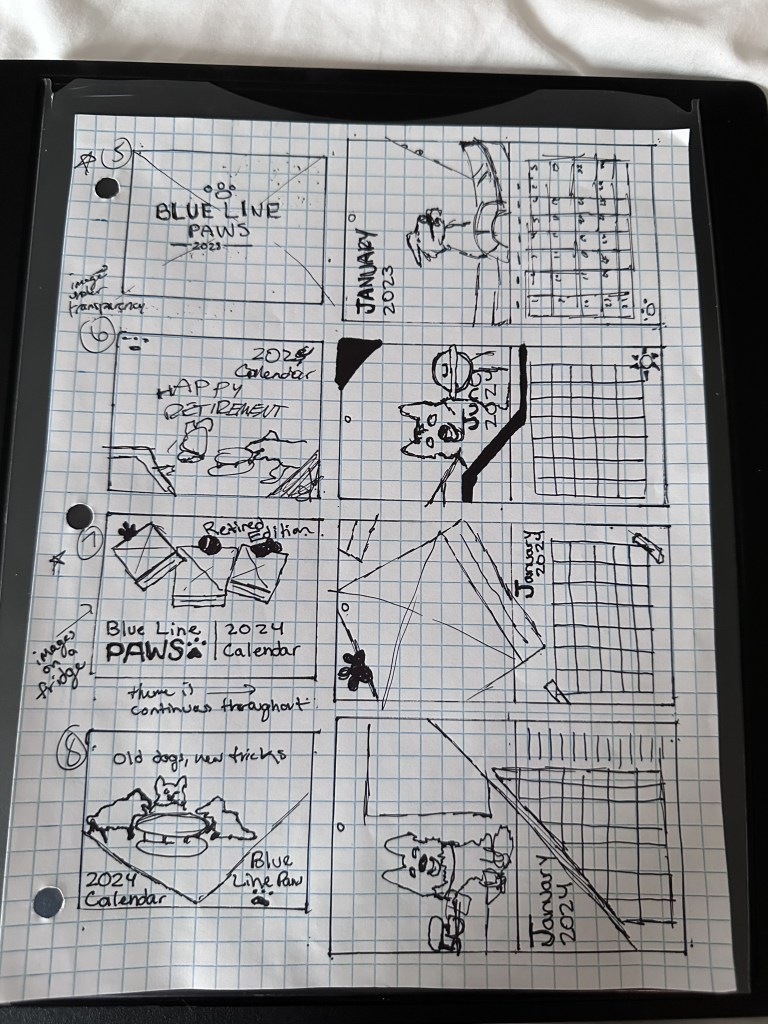 5
BLUE LINE
PAWS
2023
JANUARY
2023
images
under
transparency
6
2024
Calendar
HAPPY
RETIREMENT
2024
7
Retired
Edition
Blue Line
PAWS
2024
Calendar
January
2024
images
on a
fridge
theme is
continuous throughout
8
Old dogs, new tricks
2024
Calendar
Blue
Line Paw
January
2024